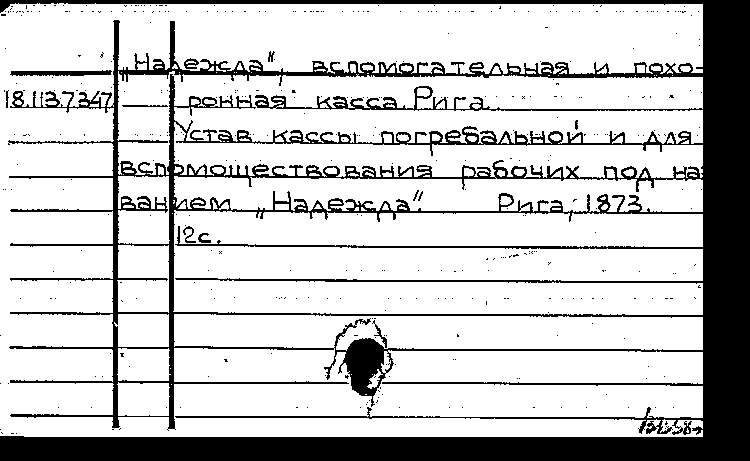 „Надежда", вспомогательная и похо-
18.113.7347 ронная касса. Рига.
Устав кассы погребальной и для
вспомоществования рабочих под наз
ванием „Надежда". Рига, 1873.
12с.